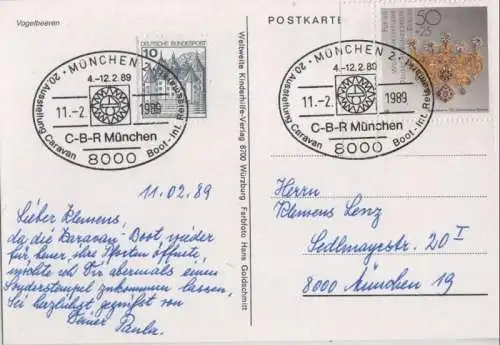 Vogelbeeren
POSTKARTE
DEUTSCHE BUNDESPOST
10
50
+25
· MÜNCHEN 2 ·
4.-12.2.89
20 Ausstellung Caravan
Boot - Int. Reisemarkt
11.-2.
1989
C-B-R München
8000
· MÜNCHEN 2 ·
4.-12.2.89
20 Ausstellung Caravan
Boot - Int. Reisemarkt
11.-2.
1989
C-B-R München
8000
Weltweite Kinderhilfe-Verlag 8700 Würzburg Farbfoto Hans Goldschmitt
11.02.89
Lieber Klemens,
da die Karavan-Boot wieder
für heuer, ihre Pforten öffnete,
möchte ich Dir abermals einen
Sonderstempel zukommen lassen,
Sei herzlichst gegrüßt von
Deiner Paula.
Herrn
Klemens Lenz
Sedlmayrstr. 20 I
8000 München 19